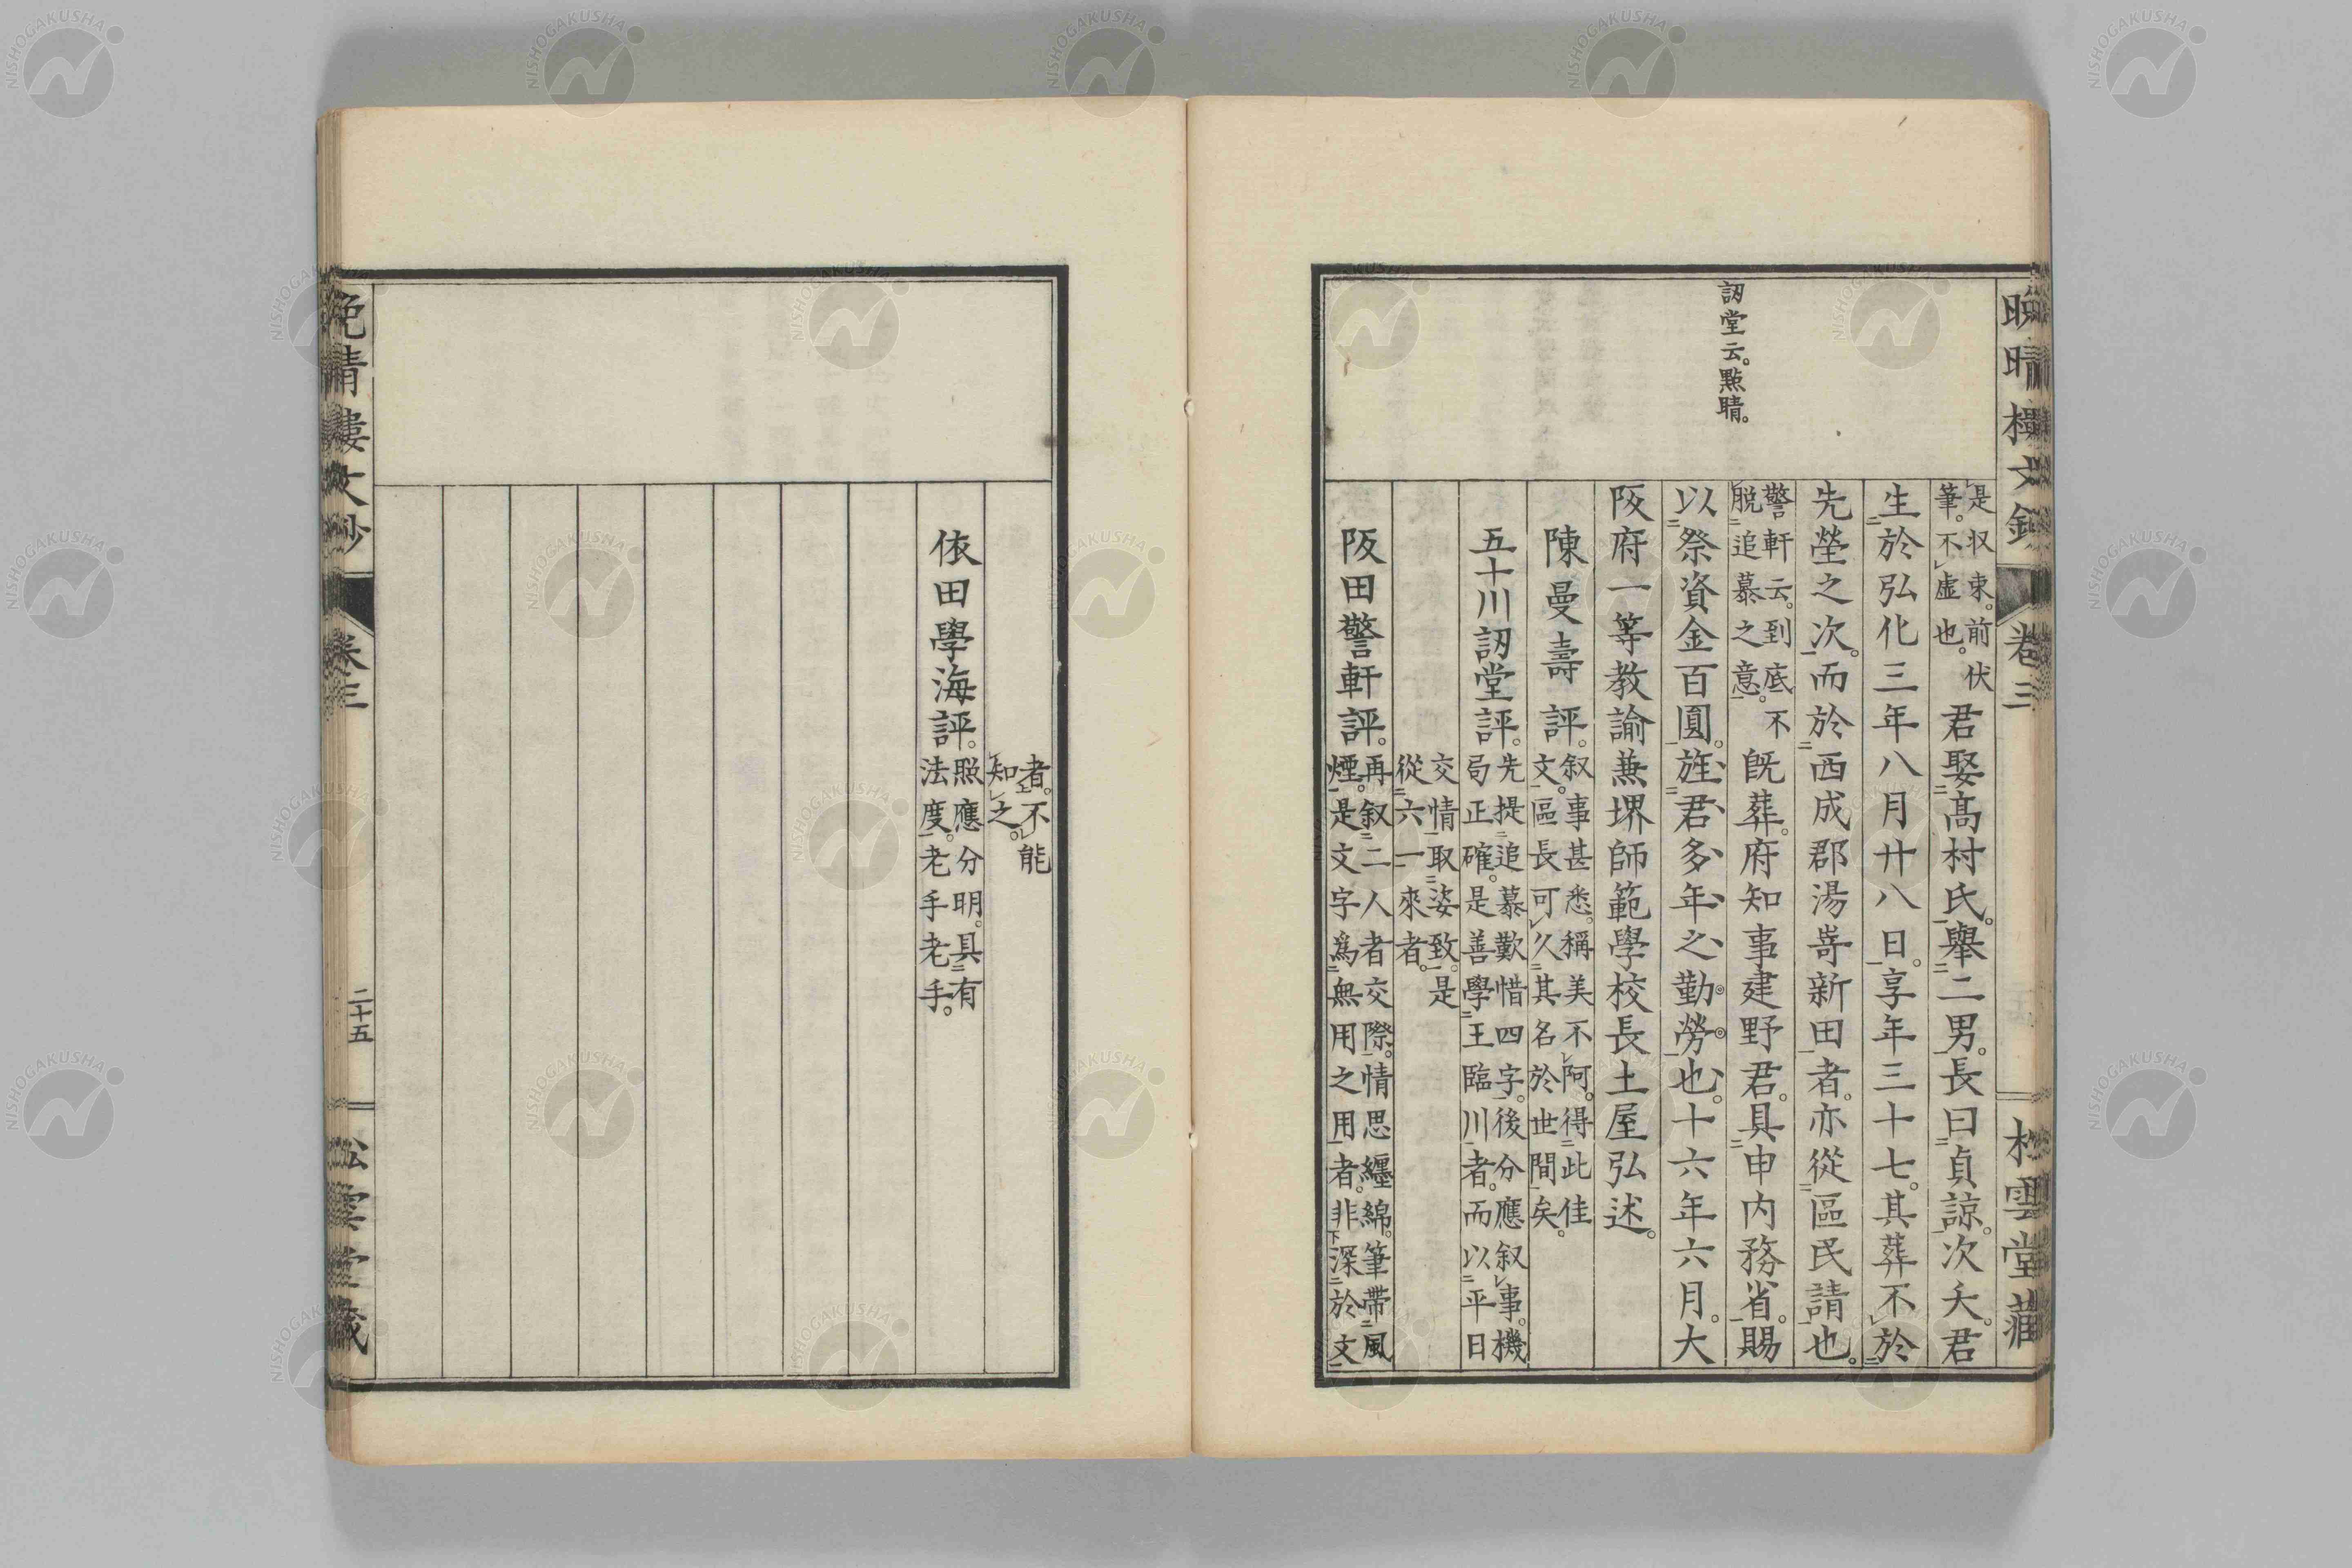 晩晴樓文鈔 卷三 松雲堂藏
訒堂云。點睛。
是収束。前伏
筆。不虛也。
君娶髙村氏。舉二男。長曰貞諒。次夭。君
生於弘化三年八月廿八日。享年三十七。其葬不於
先塋之次。而於西成郡湯嵜新田者。亦從區民請也。
警軒云。到底不
脫追慕之意。
既葬。府知事建野君。具申内務省。賜
以祭資金百圓。旌君多年之勤勞也。十六年六月。大
阪府一等教諭兼堺師範學校長土屋弘述。
陳曼壽評。
叙事甚悉。稱美不阿。得此佳
文。區長可久其名於世間矣。
五十川訒堂評。
先提追慕歎惜四字。後分應叙事。機
局正確。是善學王臨川者。而以平日
交情取姿致。是
從六一來者。
阪田警軒評。
再叙二人者交際。情思纒綿。筆帶風
煙。是文字爲無用之用者。非深於文
者。不能
知之。
依田學海評。
照應分明。具有
法度。老手老手。
晩晴樓文鈔 卷三 二十五 松雲堂藏
NISHOGAKUSHA